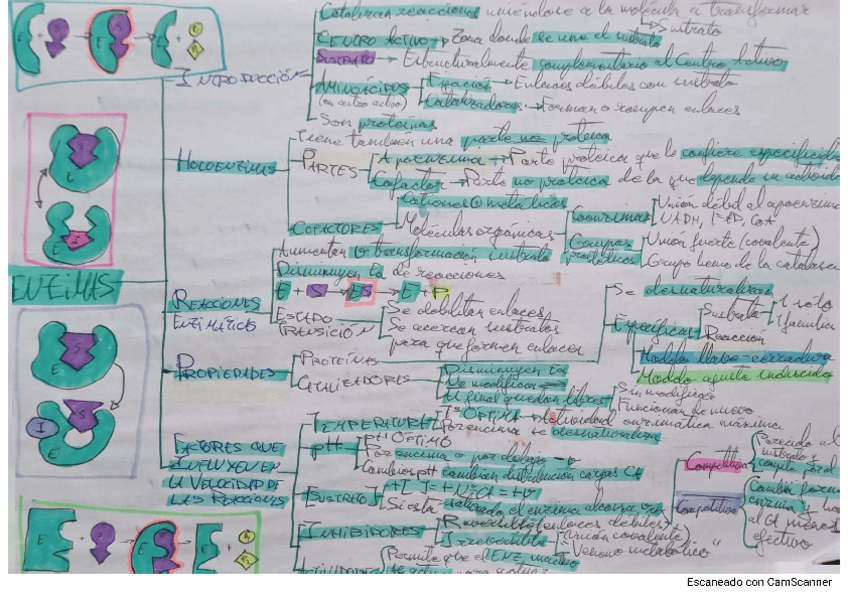 Catalizan reacciones uniéndose a la molécula a transformar
Sustrato
CENTRO ACTIVO → Zona donde se une el sustrato
SUSTRATO → Estructuralmente complementario al Centro Activo
INTRODUCCIÓN
AMINOÁCIDOS
(en centro activo)
Fijación → Enlaces débiles con sustrato
Catalizadores → Forman o rompen enlaces
Son proteínas
Tiene también una parte no proteica
HOLOENZIMAS
PARTES
Apoenzima → Parte proteica que le confiere especificidad
Cofactor → Parte no proteica de la que depende su actividad
COFACTORES
Cationes metálicos
Moléculas orgánicas
Coenzimas
Unión débil al apoenzima
NADH, FAD, CoA
Grupos prostéticos
Unión fuerte (covalente)
Grupo hemo de la catalasa
ENZIMAS
REACCIONES ENZIMÁTICAS
Aumentan la transformación sustrato
Disminuyen Ea de reacciones
E + S → ES → E + P
ESTADO TRANSICIÓN
Se debilitan enlaces
Se acercan sustratos
para que formen enlaces
PROPIEDADES
PROTEÍNAS
Se desnaturalizan
Específicas
Sustrato
1 sólo
1 familia
Reacción
Modelo llave-cerradura
Modelo ajuste inducido
CATALIZADORES
Disminuyen Ea
No modifican
Al final quedan libres
Sin modificar
Funcionan de nuevo
FACTORES QUE
INFLUYEN EN
LA VELOCIDAD DE
LAS REACCIONES
TEMPERATURA
Tª ÓPTIMA → Actividad enzimática máxima
Por encima se desnaturaliza
pH
pH ÓPTIMO
Por encima o por debajo
Cambios pH cambian distribución cargas CA
[SUSTRATO]
Si está saturado el enzima alcanza
INHIBIDORES
Reversible (enlaces débiles)
Competitiva
Parecido al
sustrato
Competitiva
Cambia forma
enzima
efectivo
Irreversible
Unión covalente
"Veneno metabólico"
Permite que el ENZ
E
S
I
P1
P2
Escaneado con CamScanner